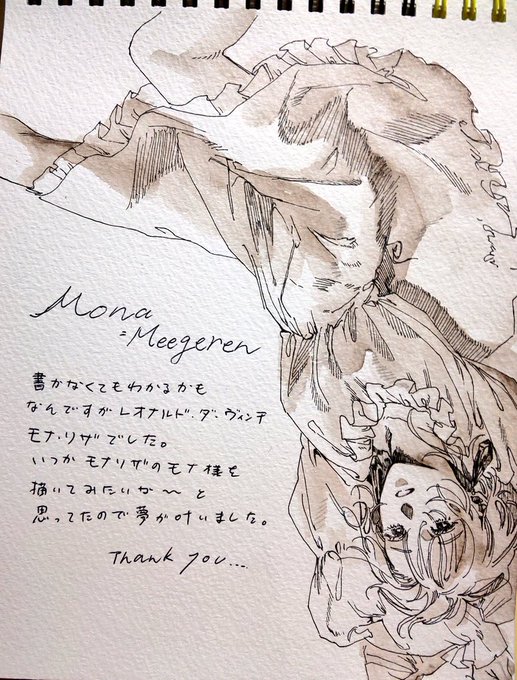 Mona
=Meegeren
書かなくてもわかるかも
なんですがレオナルド・ダ・ヴィンチ
モナ・リザでした。
いつかモナリザのモナ様を
描いてみたいな〜と
思ってたので夢が叶いました。
Thank you....